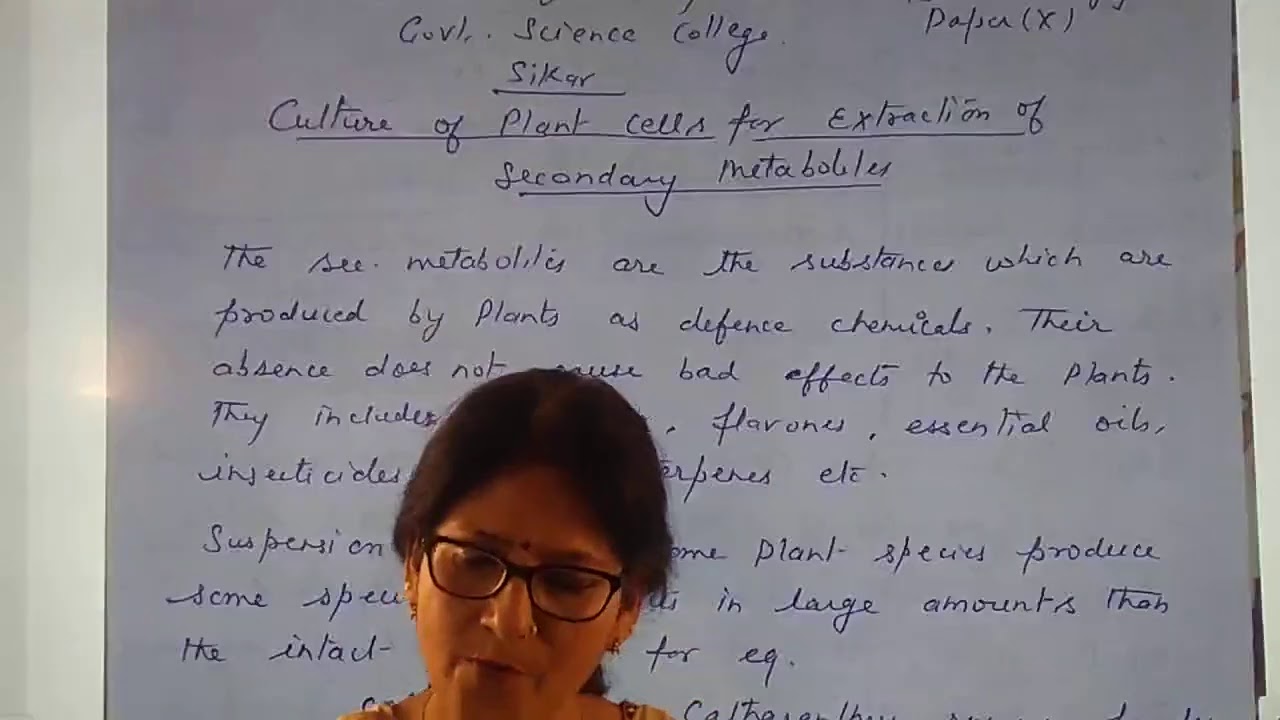 Govt. Science College.
Paper (X)
Sikar
Culture of Plant cells for Extraction of
Secondary Metabolites
The sec. metabolites are the substances which are
produced by Plants as defence chemicals. Their
absence does not cause bad effects to the Plants.
They includes , flavones, essential oils,
insecticides erpenes etc.
Suspension ome Plant species produce
some spec in large amounts than
the intact for eg.
Catharanthus